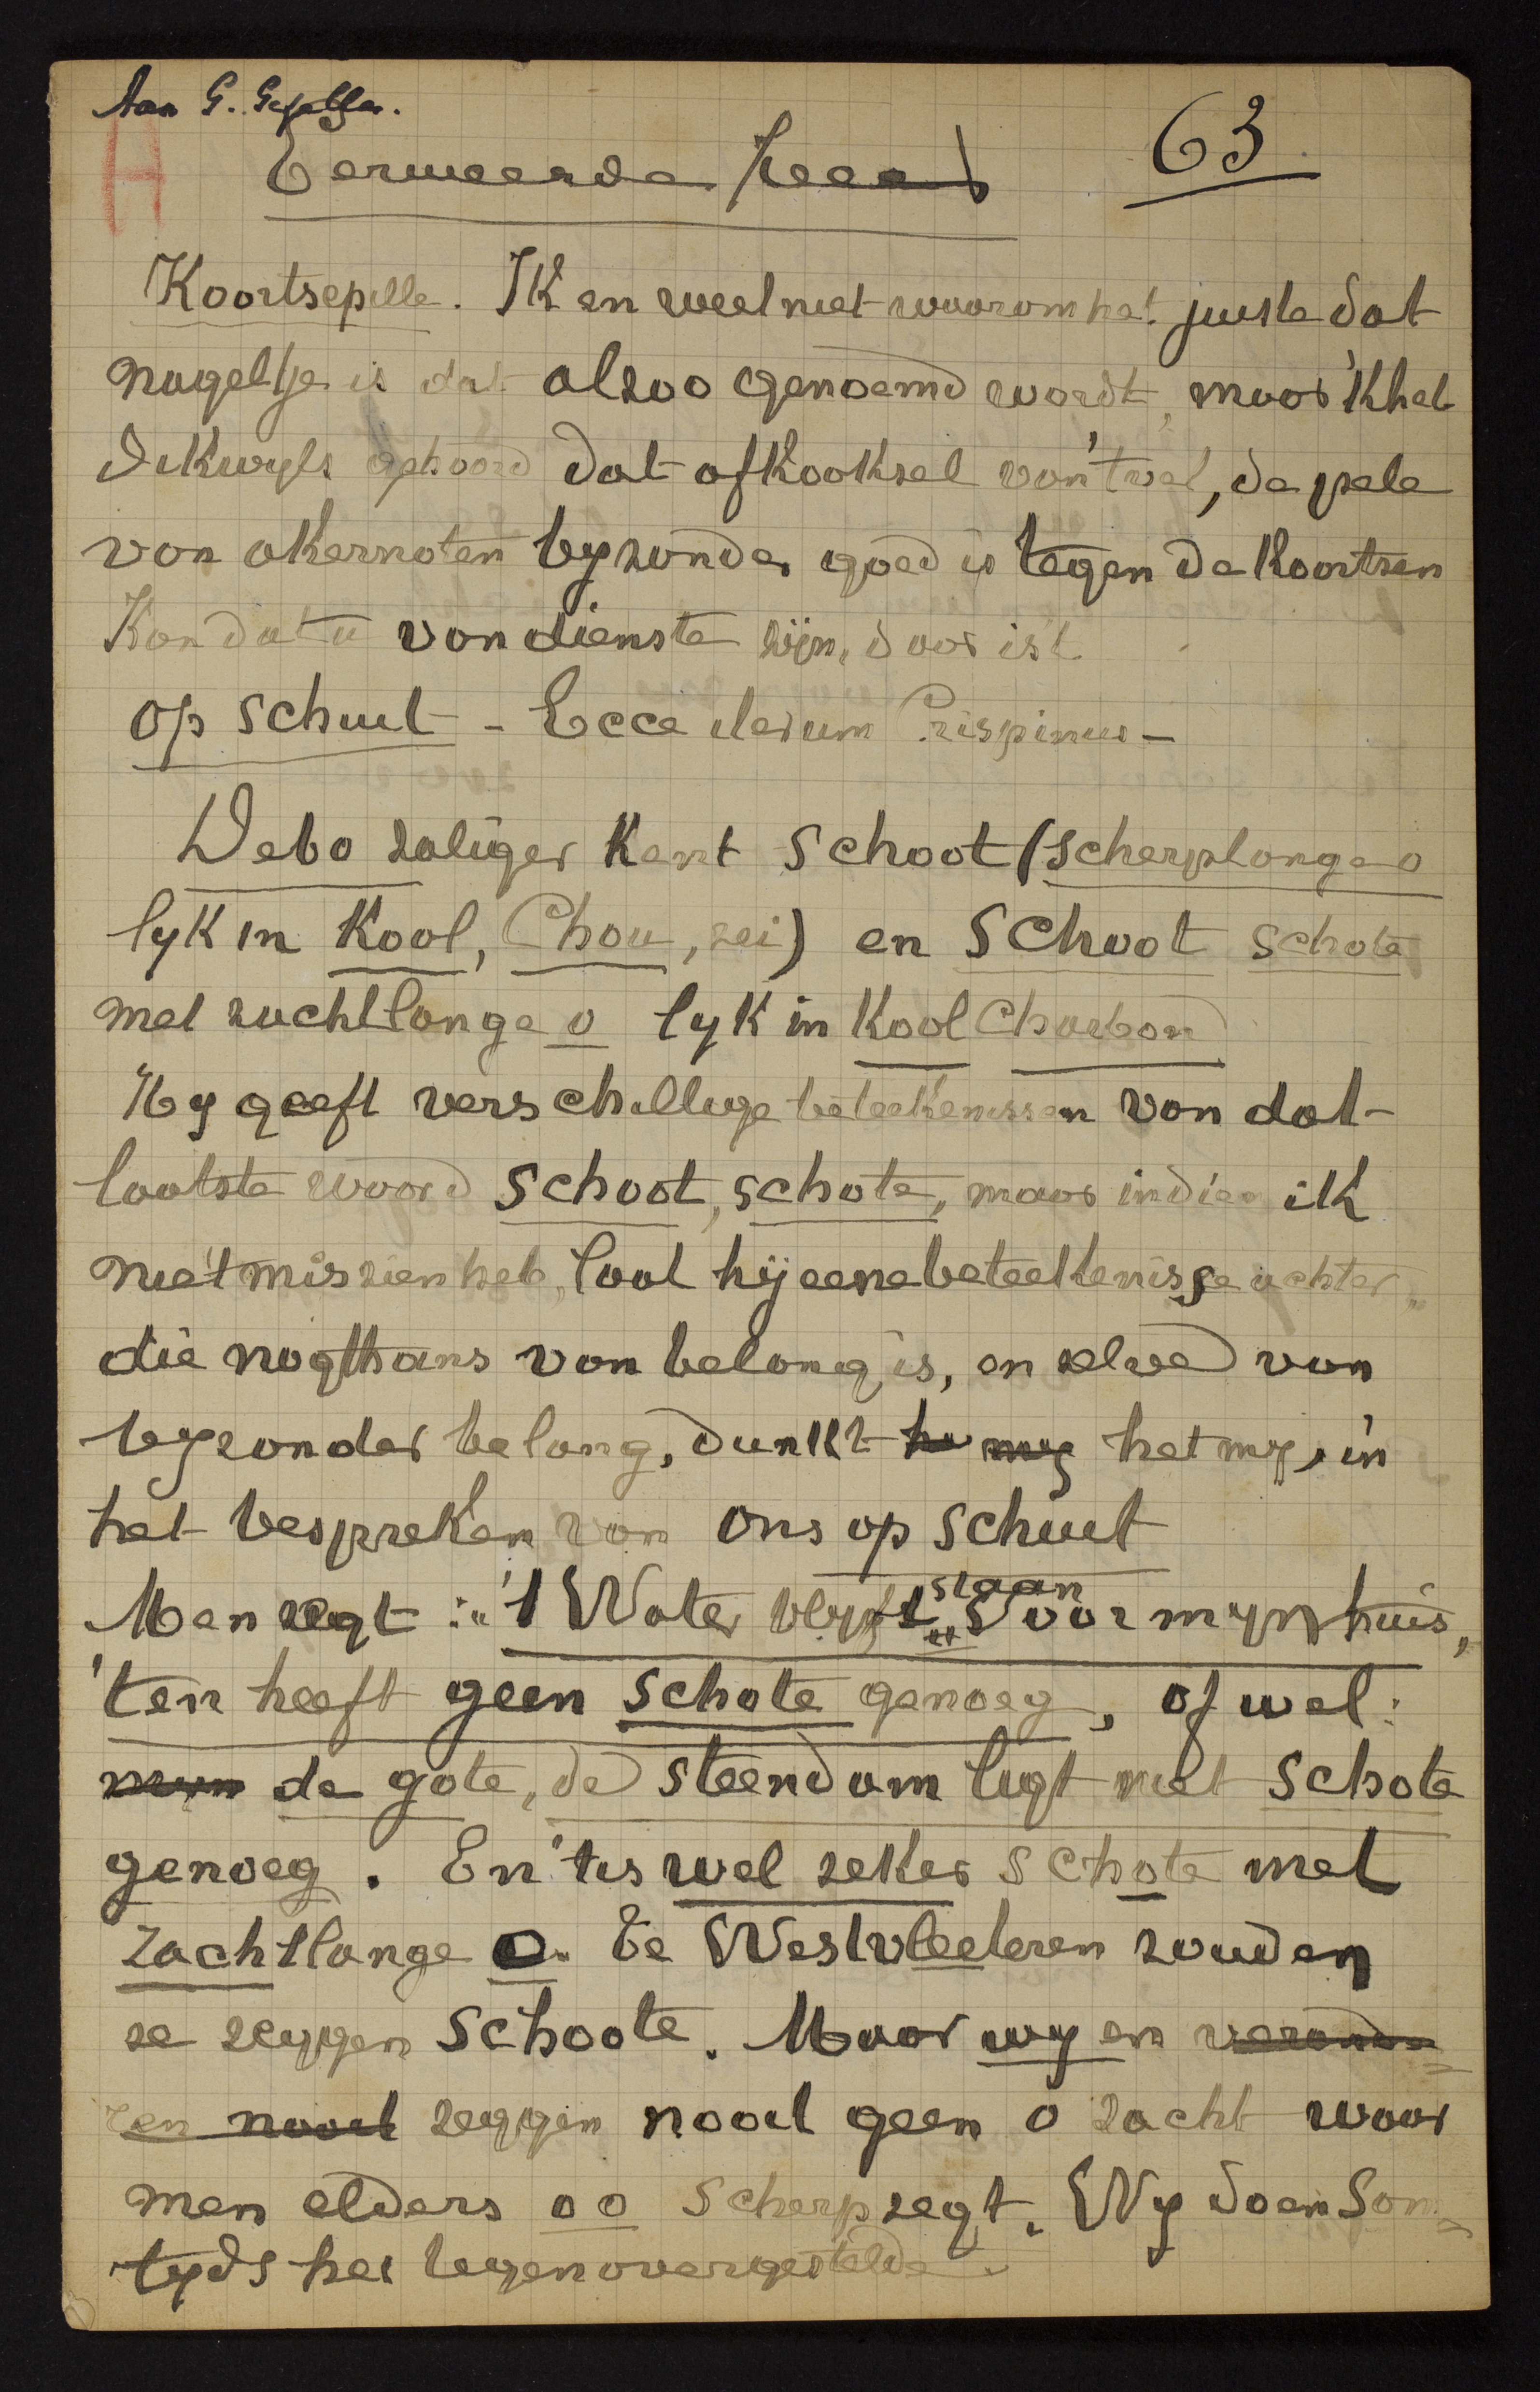 Aan G. Gezelle.
H
63
Eerweerde Heer
Koortsepille. Ik en weet niet waarom het juiste dat
nageltje is dat alzoo genoemd wordt, maar 'k heb
dikwyls gehoord dat afkooksel van 't vel, de pele
van okernoten byzonder goed is tegen de koortsen
Kan dat u van dienste zijn, daar is 't
op schuut - Ecce iterum Crispinus -
Debo zaliger kent schoot (scherplange o
lyk in Kool, Chou, zei) en schoot schote
met zachtlange o lyk in Kool Charbon
Hy geeft verschillige beteekenissen van dat
laatste woord schoot, schote, maar indien ik
niet miszien heb, laat hij eene beteekenisse achter
die nogthans van belang is, en zelve van
byzonder belang, dunkt he my het my, in
het bespreken van ons op schuut
Men zegt: "'t Water blyft staan voor myn huis,
't en heeft geen schote genoeg, of wel:
myn de gote, de steendam ligt niet schote
genoeg. En 't is wel zeker schote met
zachtlange o. Te Westvleteren zouden
ze zeggen schoote. Maar wy en verande=
ren nooit zeggen nooit geen o zacht waar
men elders oo scherp zegt. Wy doen som=
tyds het tegenovergestelde.